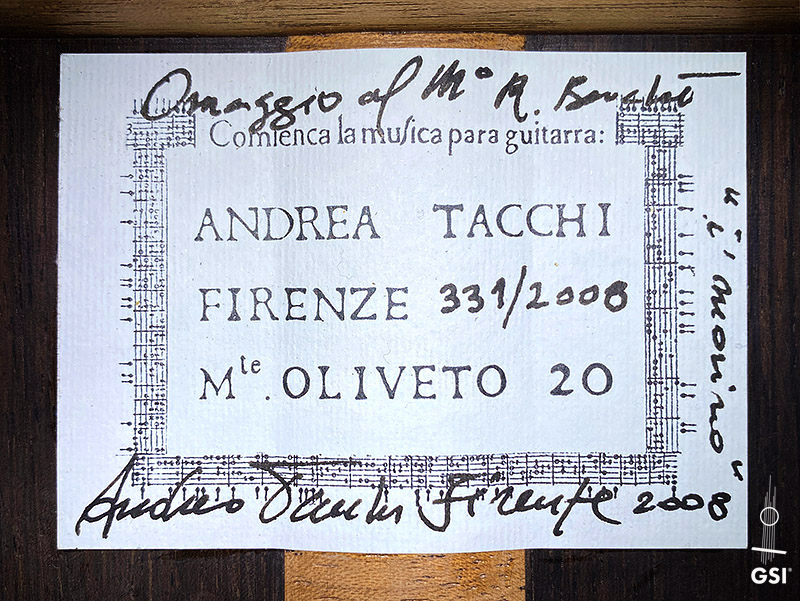 Omaggio al M° R. Bouchet
Comienca la muſica para guitarra:
ANDREA TACCHI
FIRENZE 331/2008
Mte. OLIVETO 20
Andrea Tacchi Firenze 2008
"i' morino"
GSI